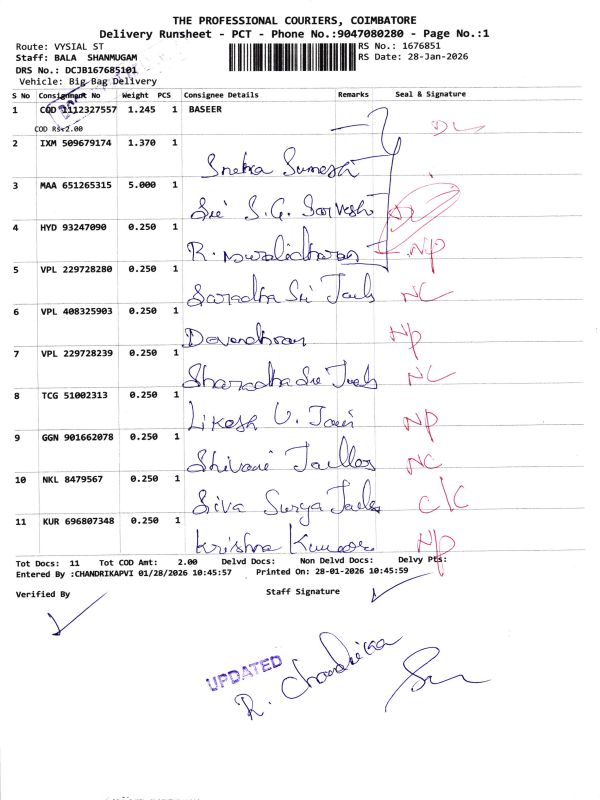 THE PROFESSIONAL COURIERS, COIMBATORE
Delivery Runsheet - PCT - Phone No.:9047080280 - Page No.:1
Route: VYSIAL ST RS No.: 1676851
Staff: BALA SHANMUGAM RS Date: 28-Jan-2026
DRS No.: DCJB167685101
Vehicle: Big Bag Delivery
S No Consignment No Weight PCS Consignee Details Remarks Seal & Signature
1 COD 1112327557 1.245 1 BASEER DL
COD Rs:2.00
2 IXM 509679174 1.370 1
Sneka Sumesh
3 MAA 651265315 5.000 1
Sri S.G. Sarvesh DL
4 HYD 93247090 0.250 1
R. muralidharan NP
5 VPL 229728280 0.250 1
Saradha Sri Jaels NC
6 VPL 408325903 0.250 1
Devendhran NP
7 VPL 229728239 0.250 1
Sharadha Sri Jaels NC
8 TCG 51002313 0.250 1
Likesh V. Jain NP
9 GGN 901662078 0.250 1
Shivani NC
10 NKL 8479567 0.250 1
Siva Surya Jaels C/C
11 KUR 696807348 0.250 1
Krishna Kumar NP
Tot Docs: 11 Tot COD Amt: 2.00 Delvd Docs: Non Delvd Docs: Delvy Pts:
Entered By :CHANDRIKAPVI 01/28/2026 10:45:57 Printed On: 28-01-2026 10:45:59
Verified By Staff Signature
UPDATED
R. Chandrika